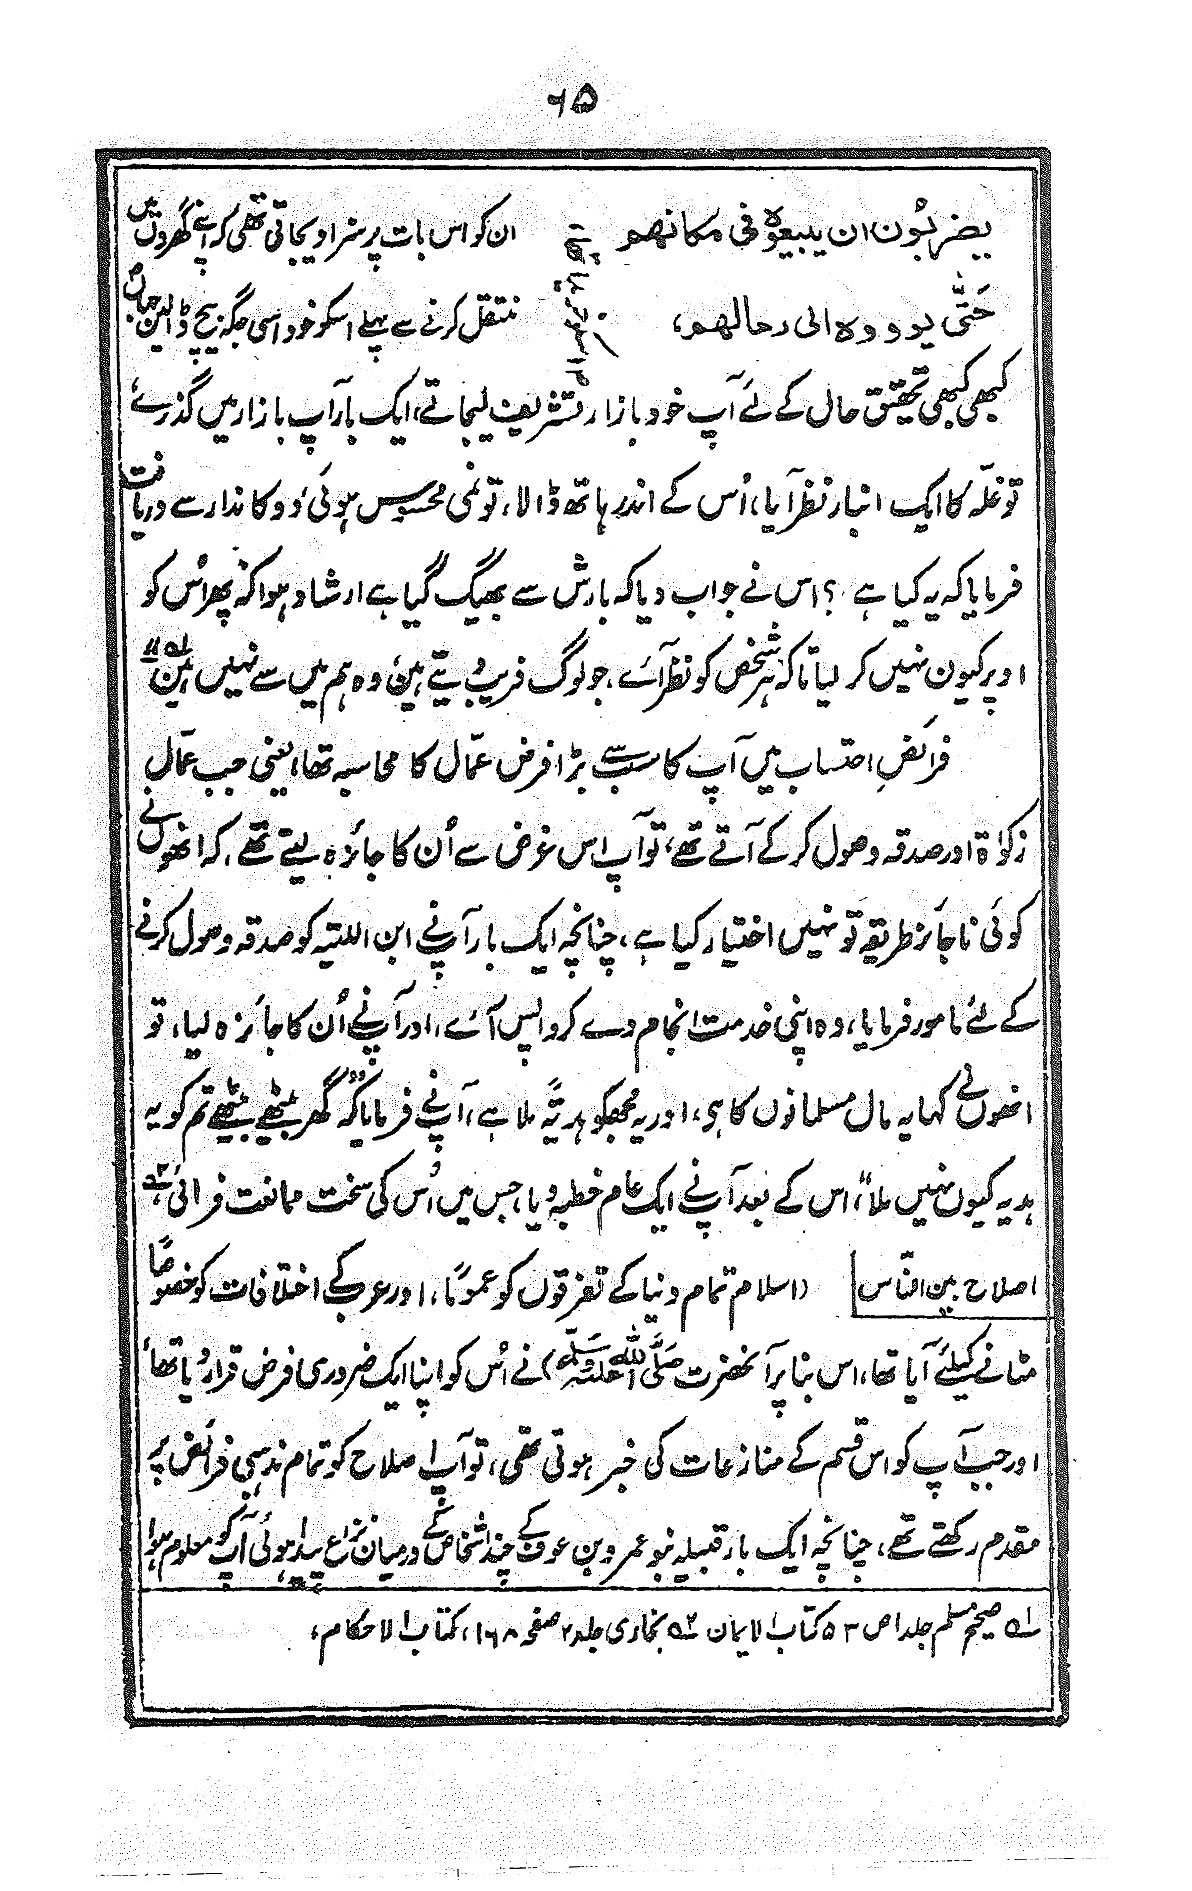 ۶۵
یضربون ان یبیعوہ فی مکانھم ان کو اس بات پر سزا دیجاتی تھی کہ اپنے گھروں میں
حَتّٰی یوووہ الی رحالھم، منتقل کرنے سے پہلے اسکو خود اسی جگہ بیچ ڈالیں جہاں
کبھی کبھی تحقیق حال کے لئے آپ خود بازار تشریف لیجاتے، ایک بار آپ بازار میں گذرے،
تو غلّہ کا ایک انبار نظر آیا، اُس کے اندر ہاتھ ڈالا، تو نمی محسوس ہوئی، دوکاندار سے دریافت
فرمایا کہ یہ کیا ہے؟ اس نے جواب دیا کہ بارش سے بھیگ گیا ہے ارشاد ہوا کہ پھر اُس کو
اوپر کیون نہیں کر لیا تاکہ ہر شخص کو نظر آئے، جو لوگ فریب دیتے ہین، وہ ہم میں سے نہیں ہین ؂۱"
فرائضِ احتساب میں آپ کا سب سے بڑا فرض عمّال کا محاسبہ تھا، یعنی جب عمّال
زکوٰۃ اور صدقہ وصول کر کے آتے تھے، تو آپ اس غرض سے اُن کا جائزہ لیتے تھے، کہ انھوں نے
کوئی ناجائز طریقہ تو نہیں اختیار کیا ہے، چنانچہ ایک بار آپ نے ابن اللتبیہ کو صدقہ وصول کرنے
کے لئے مامور فرمایا، وہ اپنی خدمت انجام دے کر واپس آئے، اور آپ نے اُن کا جائزہ لیا، تو
انھوں نے کہا یہ مال مسلمانوں کا ہی، اور یہ مجھکو ہدیّہ ملا ہے، آپ نے فرمایا کہ "گھر بیٹھے بیٹھے تم کو یہ
ہدیہ کیوں نہیں ملا"، اس کے بعد آپ نے ایک عام خطبہ دیا، جس میں اُس کی سخت ممانعت فرمائی، ؂۲
اصلاح بین النّاس (اسلام تمام دنیا کے تفرقوں کو عموماً، اور عرب کے اختلافات کو خصوصاً
مٹانے کیلئے آیا تھا، اس بنا پر آنحضرت صَلَّی اللّٰہ علیہ وسلّم) نے اُس کو اپنا ایک ضروری فرض قرار دیا تھا،
اور جب آپ کو اس قسم کے منازعات کی خبر ہوتی تھی، تو آپ اصلاح کو تمام مذہبی فرائض پر
مقدم رکھتے تھے، چنانچہ ایک بار قبیلہ بنو عمرو بن عوف کے چند اشخاص کے درمیان نزاع پیدا ہوئی، آپ کو معلوم ہوا
؂۱ صحیح مسلم جلد ا ص ۵۳ کتاب الایمان ؂۲ بخاری جلد ۲ صفحہ ۱۰۶۸، کتاب الاحکام،